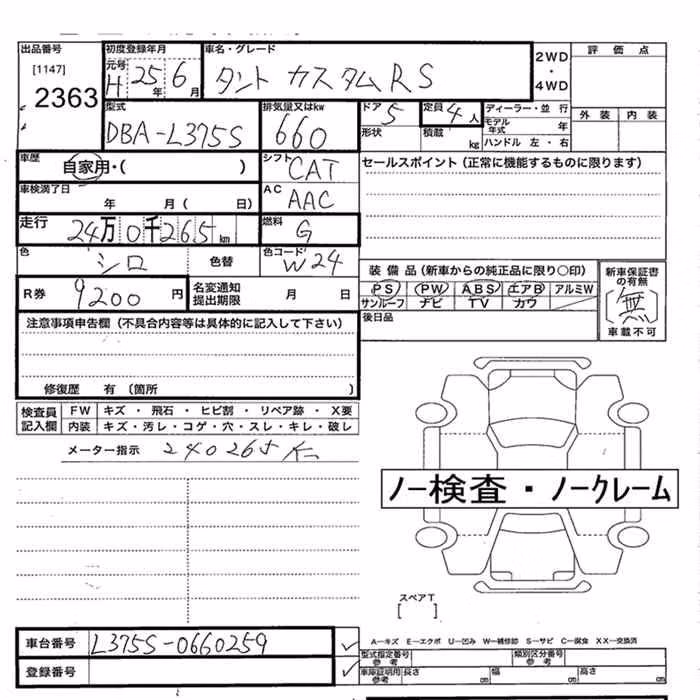 出品番号 初度登録年月 車名・グレード 2WD・4WD 評価点
[1147] 元号 H 25 年 6 月 タント カスタム RS
2363
型式 排気量又はkw ドア 5 定員 4 人 ディーラー・並行 外装 内装
DBA-L375S 660 形状 積載 kg モデル年式 年
ハンドル 左・右
車歴 自家用・( ) シフト CAT セールスポイント(正常に機能するものに限ります)
車検満了日 年 月( 日) AC AAC
走行 24万0千265km 燃料 G
色 シロ 色替 色コード W24
R券 9200円 名変通知提出期限 月 日
装備品(新車からの純正品に限り○印) 新車保証書の有無
PS PW ABS エアB アルミW (無)
サンルーフ ナビ TV カワ 車載不可
後日品
注意事項申告欄(不具合内容等は具体的に記入して下さい)
修復歴 有 〔箇所
検査員記入欄 FW キズ・飛石・ヒビ割・リペア跡・X要
内装 キズ・汚レ・コゲ・穴・スレ・キレ・破レ
メーター指示 240265K
ノー検査・ノークレーム
スペアT
[ ]
車台番号 L375S-0660259
登録番号
A―キズ E―エクボ U―凹み W―補修跡 S―サビ C―腐食 XX―交換済
型式指定番号 参考 類別区分番号 参考
車庫証明用 参考 長さ cm 幅 cm 高さ cm